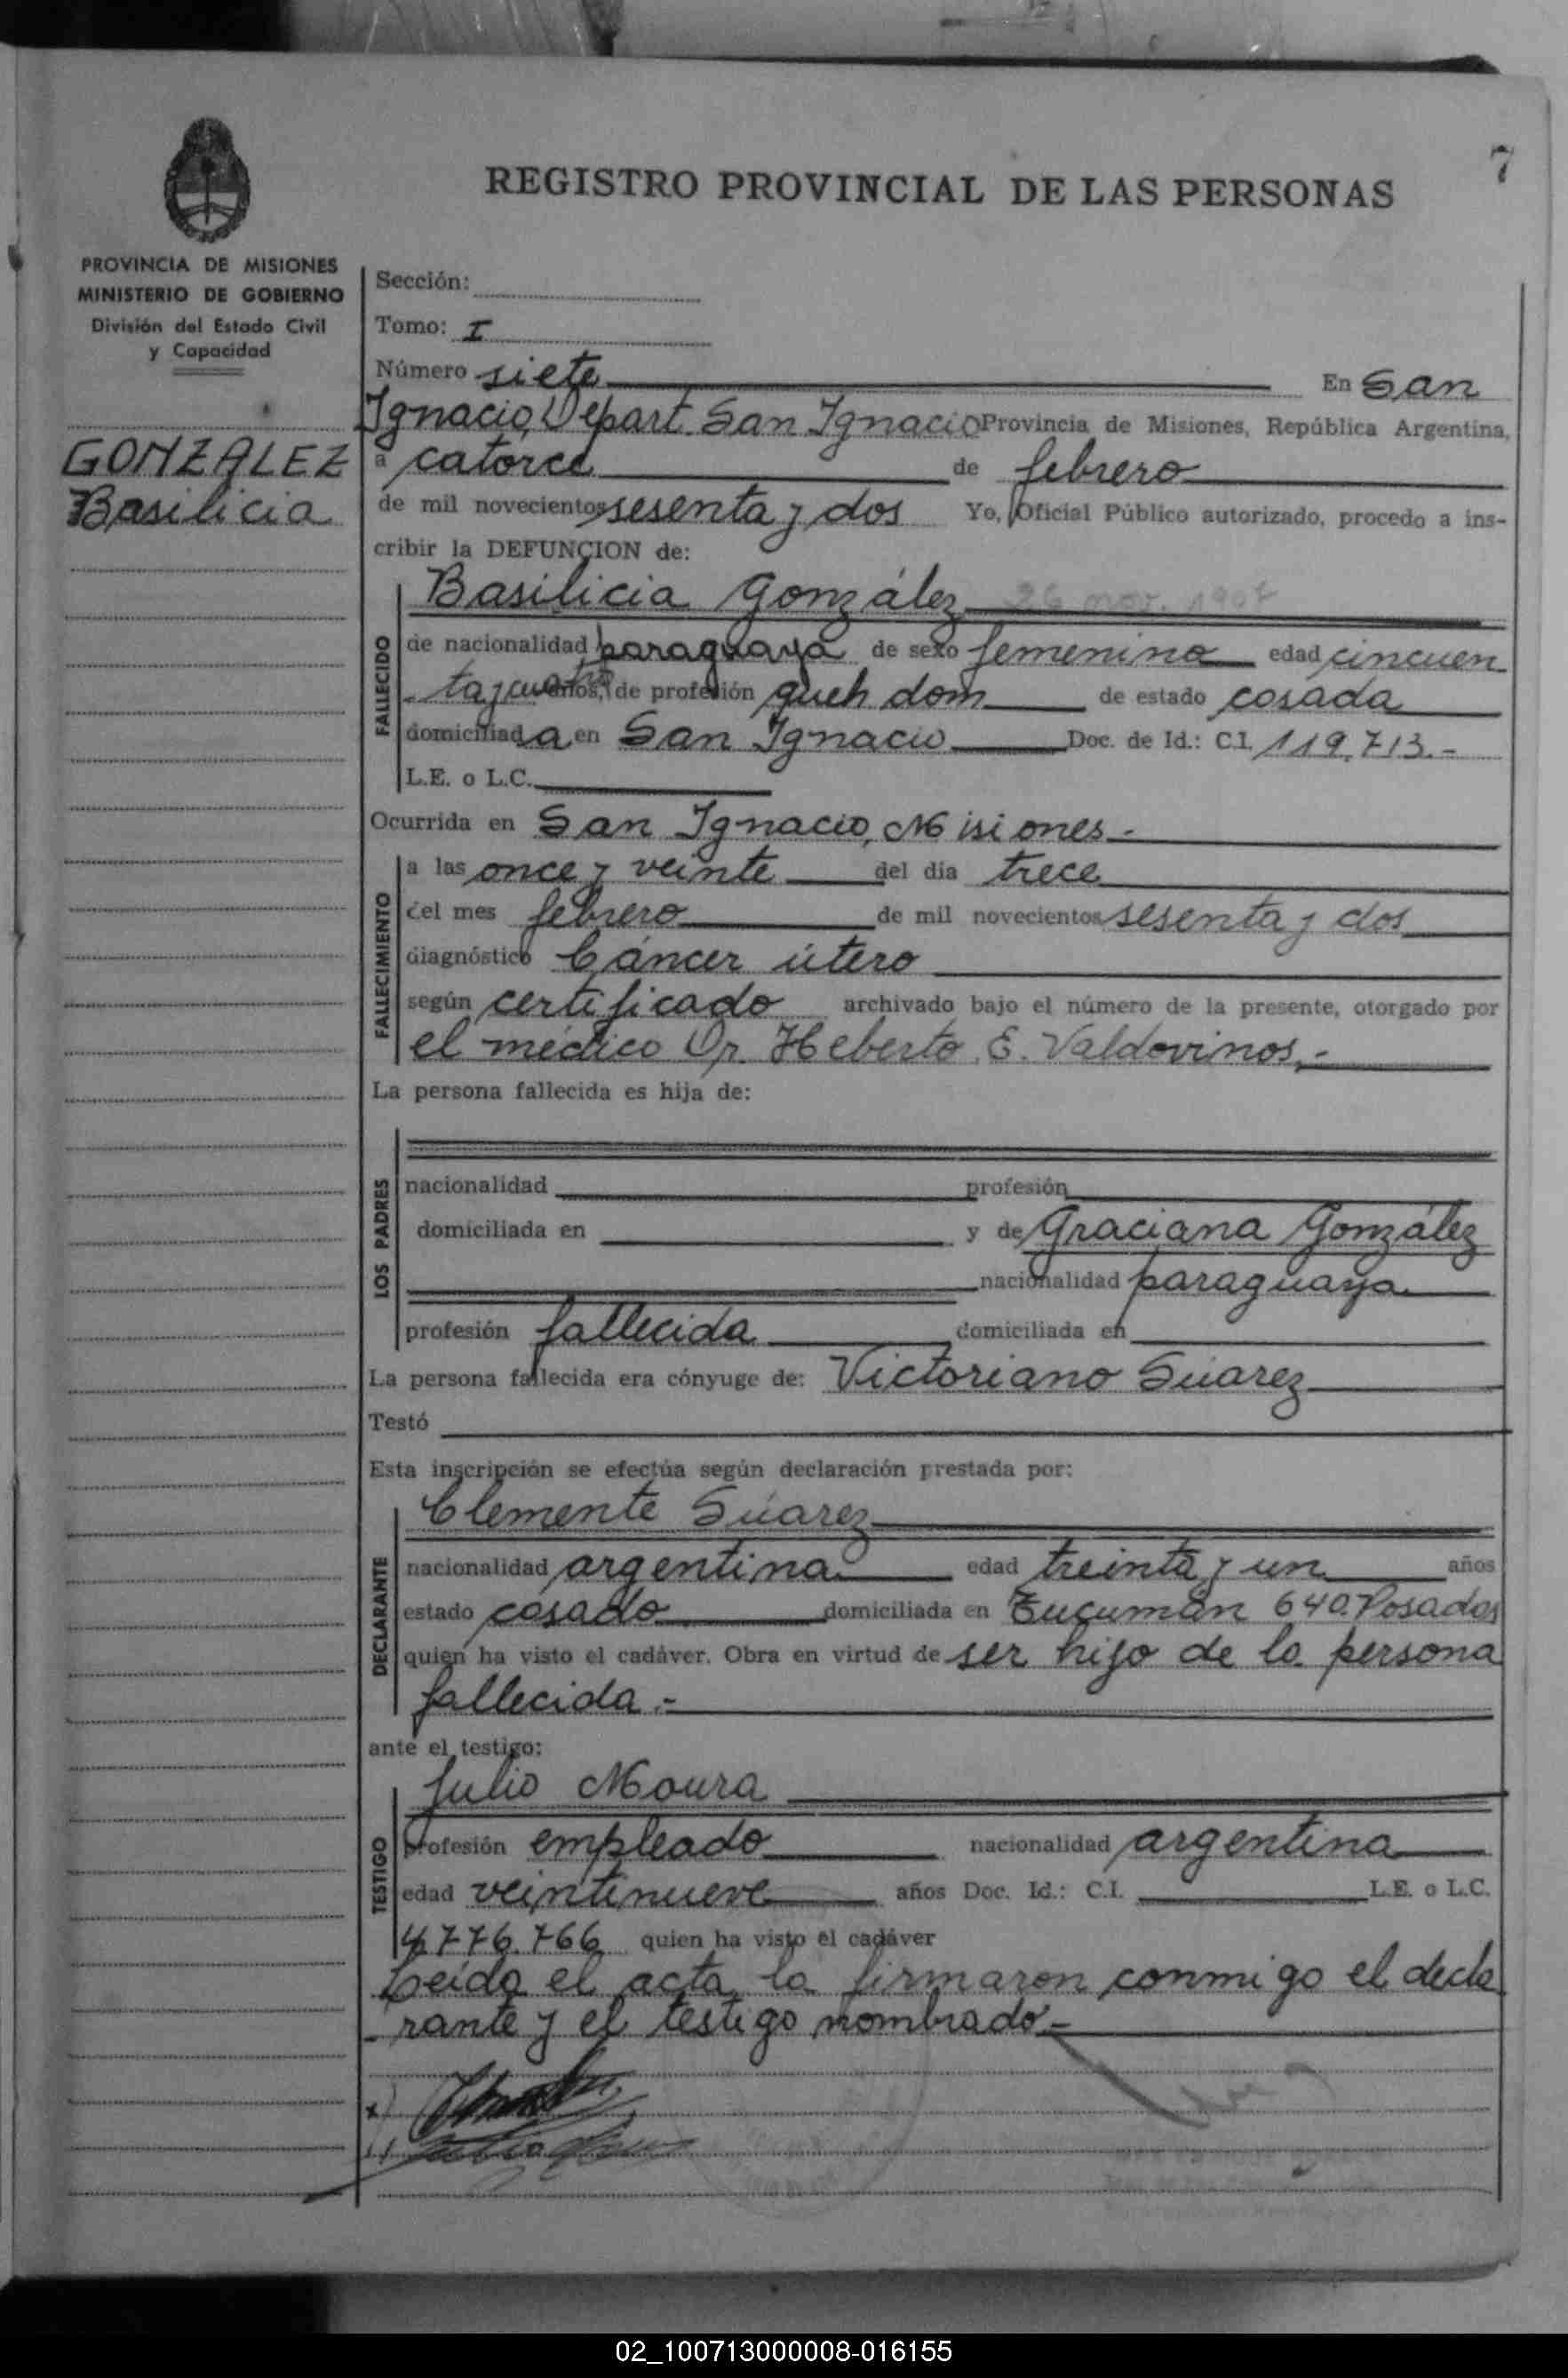 7
REGISTRO PROVINCIAL DE LAS PERSONAS
PROVINCIA DE MISIONES
MINISTERIO DE GOBIERNO
División del Estado Civil
y Capacidad
GONZALEZ
Basilicia
Sección:
Tomo: I
Número siete En San
Ignacio, Depart. San Ignacio Provincia de Misiones, República Argentina,
a catorce de febrero
de mil novecientos sesenta y dos Yo, Oficial Público autorizado, procedo a ins-
cribir la DEFUNCION de:
FALLECIDO
Basilicia González 26 nov. 1907
de nacionalidad paraguaya de sexo femenino edad cincuen
ta y cuatro años, de profesión queh dom de estado casada
domiciliada en San Ignacio Doc. de Id.: C.I. 119.713.-
L.E. o L.C.
Ocurrida en San Ignacio, Misiones.-
FALLECIMIENTO
a las once y veinte del día trece
del mes febrero de mil novecientos sesenta y dos
diagnóstico Cáncer útero
según certificado archivado bajo el número de la presente, otorgado por
el médico Dr. Heberto E. Valdovinos.-
La persona fallecida es hija de:
LOS PADRES
nacionalidad profesión
domiciliada en y de Graciana González
nacionalidad paraguaya
profesión fallecida domiciliada en
La persona fallecida era cónyuge de: Victoriano Súarez
Testó
Esta inscripción se efectúa según declaración prestada por:
DECLARANTE
Clemente Súarez
nacionalidad argentina edad treinta y un años
estado casado domiciliada en Tucumán 640. Posadas
quien ha visto el cadáver. Obra en virtud de ser hijo de la persona
fallecida.-
ante el testigo:
TESTIGO
Julio Moura
profesión empleado nacionalidad argentina
edad veintinueve años Doc. Id.: C.I. L.E. o L.C.
4.776.766 quien ha visto el cadáver
Leída el acta, la firmaron conmigo el decla
rante y el testigo nombrado.-
02_100713000008-016155